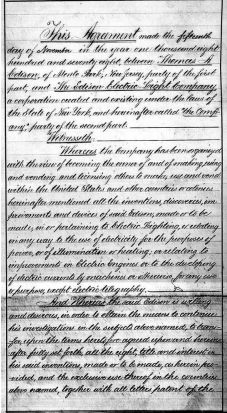 This Agreement made the fifteenth
day of November in the year one thousand eight
hundred and seventy eight, between Thomas A
Edison, of Menlo Park, New Jersey, party of the first
part, and The Edison Electric Light Company,
a corporation created and existing under the laws of
the State of New York, and hereinafter called "the Comp-
any," party of the second part
Witnesseth.
Whereas the Company has been organized
with the view of becoming the owner of and of making, using
and vending and licensing others to make, use and vend
within the United States and other countries or colonies
hereinafter mentioned all the inventions, discoveries, im-
provements and devices of said Edison, made or to be
made, in or pertaining to Electric Lighting, or relating
in any way to the use of electricity for the purposes of
power, or of illumination or heating, or relating to
improvements in Electric Engines or to the developing
of electric currents by machines or otherwise for any use
or purpose except electric telegraphy.
And Whereas the said Edison is willing
and desirous, in order to obtain the means to continue
his investigations in the subjects above named, to trans-
fer, upon the terms herein agreed upon and herein-
after fully set forth, all the right, title and interest in
his said inventions, made or to be made, as herein pro-
vided, and the exclusive use thereof in the countries
above named, together with all letters patent of the